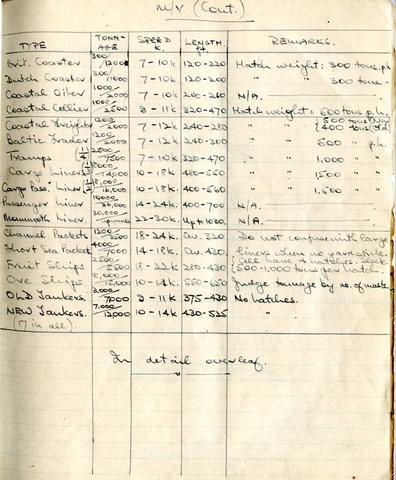 M/V (Cont.)
TYPE TONN-AGE SPEED k. LENGTH ft. REMARKS.
Brit. Coaster 300/1200 7-10k 120-220 Hatch weight: 300 tons.p.h
Dutch Coaster 300/1000 7-10k 120-200 " " 300 tons. "
Coastal Oiler 1000/2000 7-10k 200-260 N/A.
Coastal Collier 1000/2500 8-11k 320-470 Hatch weight = 500 tons p.h.
Coastal Freighter 1200/2000 7-12k 240-280 " " {500 tons (New) 400 tons (Old)
Baltic Trader 1200/2000 7-12k 240-300 " " 500 " p.h.
Tramps 7-10k 320-470 " " 1,000 "
Cargo Liners 10-18k " " 1500 "
Cargo Pass. Liner 10-18k 400-560 " " 1,500 "
Passenger Liner 14-24k 400-700 N/A.
Mammoth Liner 30,000 22-30k. Up to 1030. N/A.
Channel Packets 18-24k. Av. 320 Do not confuse with large
Short Sea Packets 14-18k. Av. 430 liners when no yardstick.
Fruit Ships 18-22k 280-430 {All have 4 hatches.
500-1,000 tons per hatch.
Ore Ships 10-14k 550-650 Judge tonnage by no. of masts.
OLD Tankers. 3,000/7000 8-11k 375-430 No hatches.
NEW Tankers. 7,000/12000 10-14k 430-525 "
(17 in all).
In detail overleaf.